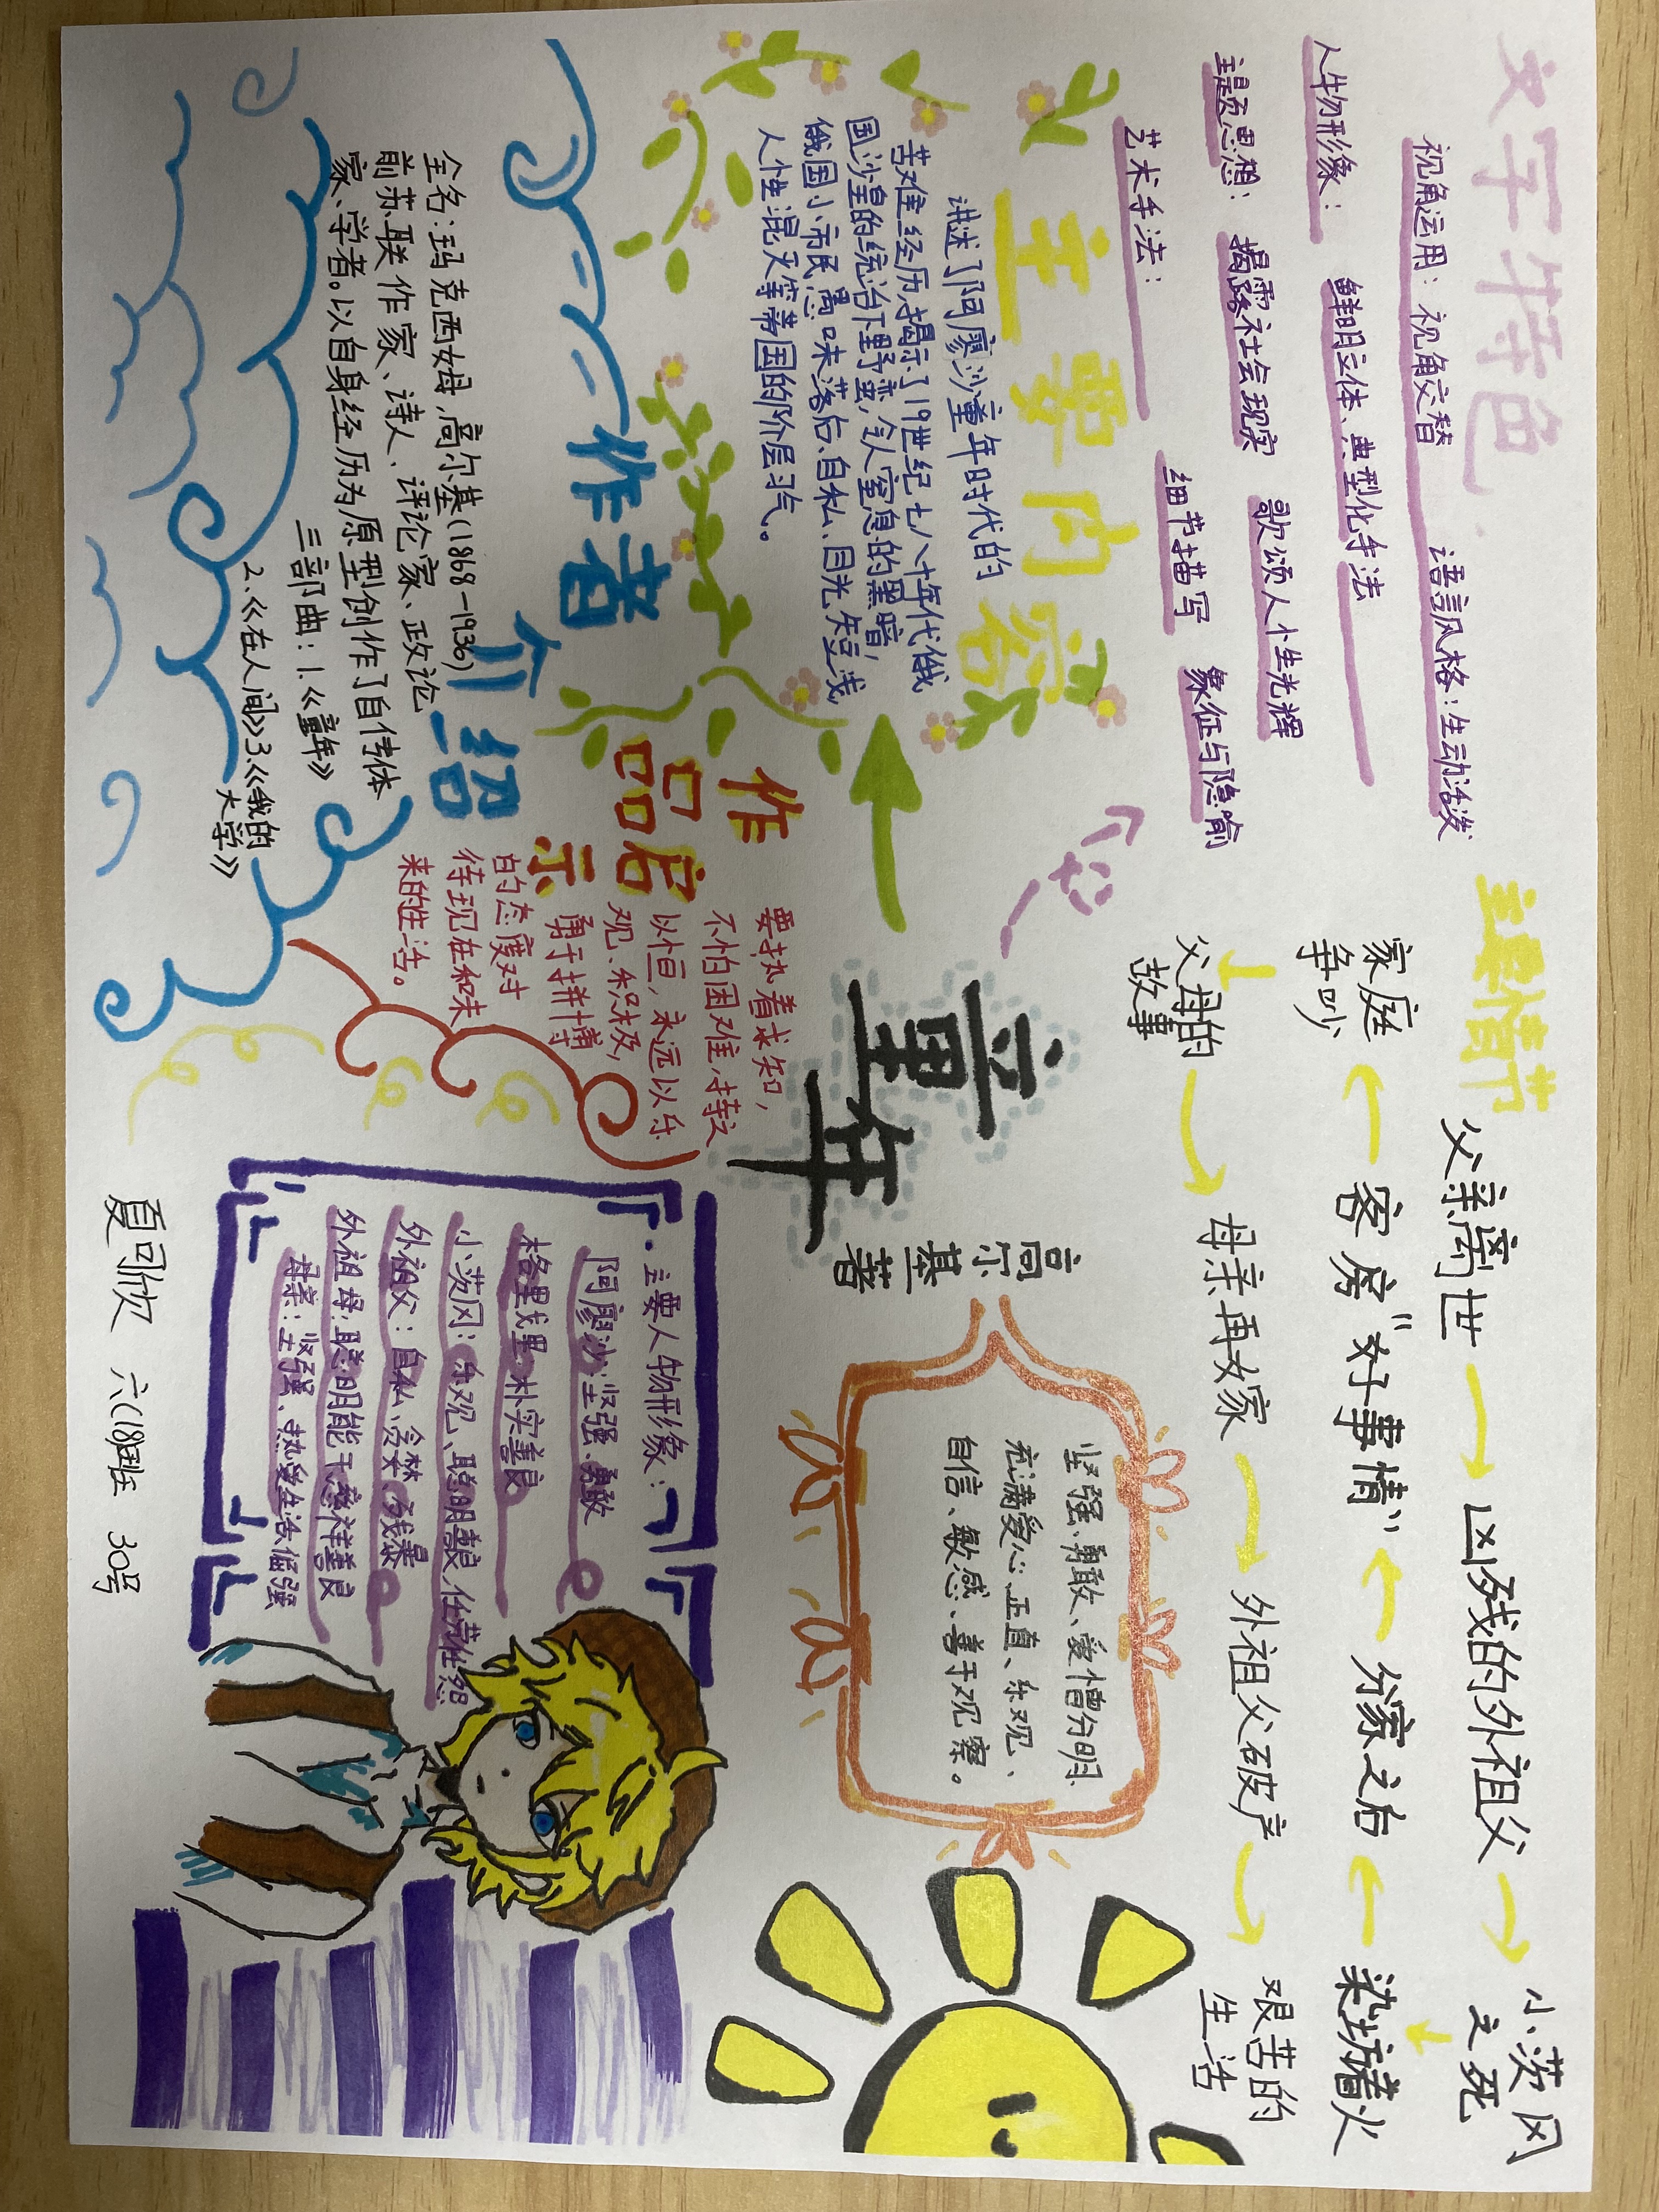 文字特色
视角运用：视角交替 语言风格：生动活泼
人物形象： 鲜明立体、典型化手法
主题思想： 揭露社会现实 歌颂人性光辉
艺术手法： 细节描写 象征与隐喻
主要内容
讲述了阿廖沙童年时代的
苦难经历,揭示了19世纪七八十年代俄
国沙皇的统治下野蛮,令人窒息的黑暗,
俄国小市民愚昧落后、自私、目光短浅
人性混灭等帝国的阶层习气。
作者介绍
全名:玛克西姆,高尔基(1868-1936)
前苏联作家、诗人、评论家、政论
家、学者。以自身经历为原型创作了自传体
三部曲：1.《童年》
2.《在人间》3.《我的
大学》
作品启示
要执着求知，
不怕困难,持之
以恒，永远以乐
观、积极,
勇于拼搏
的态度对
待现在和未
来的生活。
童年
高尔基著
主要情节
父亲离世 凶残的外祖父 小茨冈
之死
家庭
争吵 客房“好事情” 分家之后 染坊着火
父母的
故事 母亲再嫁 外祖父破产 艰苦的
生活
坚强、勇敢、爱憎分明、
充满爱心、正直、乐观、
自信、敏感、善于观察。
主要人物形象：
阿廖沙:坚强、勇敢
格里戈里:朴实善良
小茨冈：乐观、聪明善良、任劳任怨
外祖父：自私、贪婪、残暴
外祖母:聪明能干、慈祥善良
母亲：坚强、热爱生活、倔强
夏可欣 六(18)班 30号